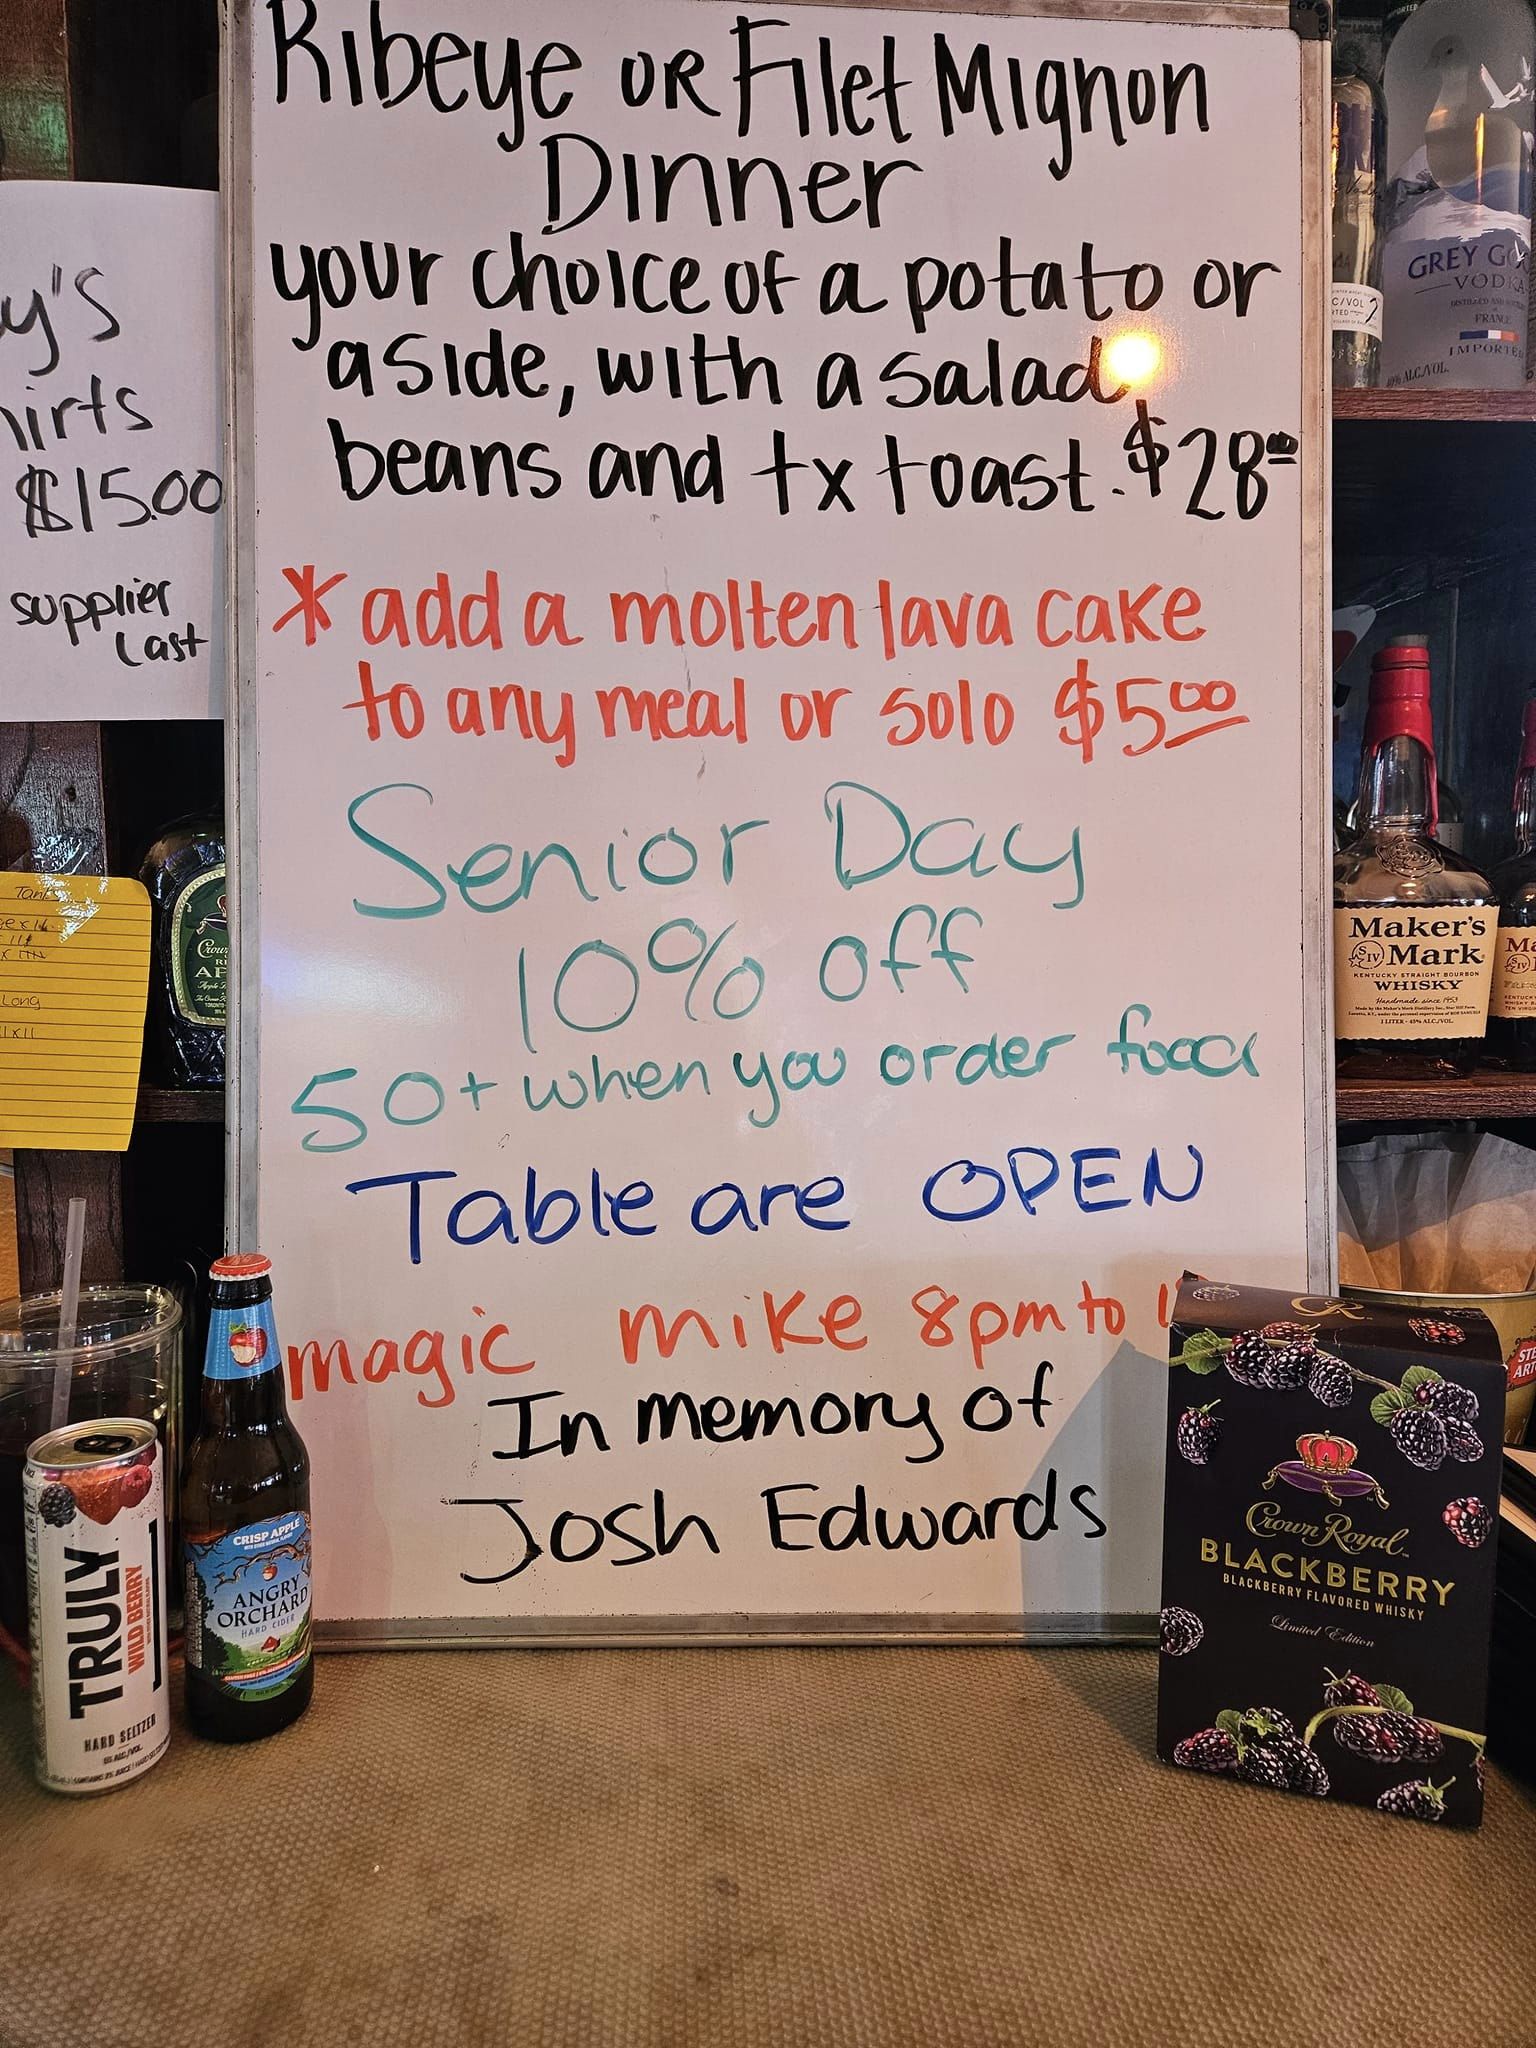 Ribeye or Filet Mignon
Dinner
your choice of a potato or
a side, with a salad,
beans and tx toast. $28.00
* add a molten lava cake
to any meal or solo $5.00
Senior Day
10% off
50+ when you order food
Table are OPEN
magic mike 8pm to
In memory of
Josh Edwards
$15.00
supplier
last
GREY
VODKA
DISTILLED AND
FRANCE
IMPORTED
40% ALC./VOL.
Maker's
SIV Mark
KENTUCKY STRAIGHT BOURBON
WHISKY
Handmade since 1953
1 LITER - 45% ALC./VOL.
TRULY
WILD BERRY
HARD SELTZER
5% ALC./VOL.
CRISP APPLE
ANGRY
ORCHARD
HARD CIDER
CR
Crown Royal
BLACKBERRY
BLACKBERRY FLAVORED WHISKY
Limited Edition